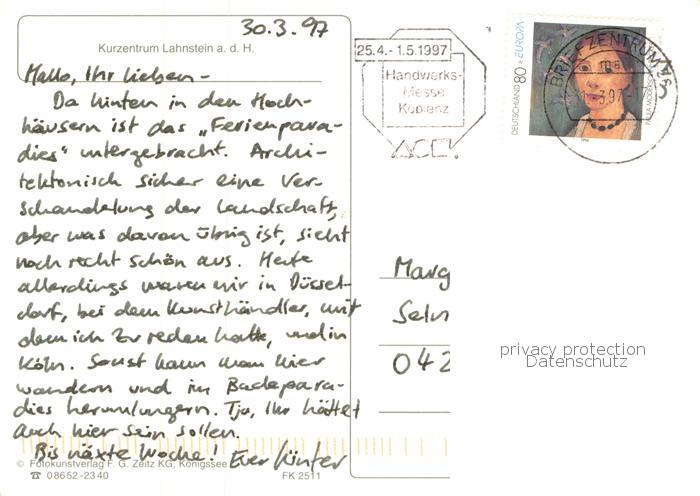 30.3.97
Kurzentrum Lahnstein a. d. H.
Hallo, Ihr Lieben –
Da hinten in den Hoch-
häusern ist das „Ferienpara-
dies“ untergebracht. Archi-
tektonisch sicher eine Ver-
schandelung der Landschaft,
aber was davon übrig ist, sieht
noch recht schön aus. Heute
allerdings waren wir in Düssel-
dorf, bei dem Kunsthändler, mit
dem ich zu reden hatte, und in
Köln. Sonst kann man hier
wandern und im Badepara-
dies herumlungern. Tja, Ihr hättet
auch hier sein sollen.
Bis näxte Woche! Euer Günter
© Fotokunstverlag F. G. Zeitz KG, Königssee
☎ 08652-2340 FK 2511
25.4.-1.5.1997
Handwerks-
Messe
Koblenz
DEUTSCHLAND 80 EUROPA
BRIEFZENTRUM
Marg
Seln
042
privacy protection
Datenschutz